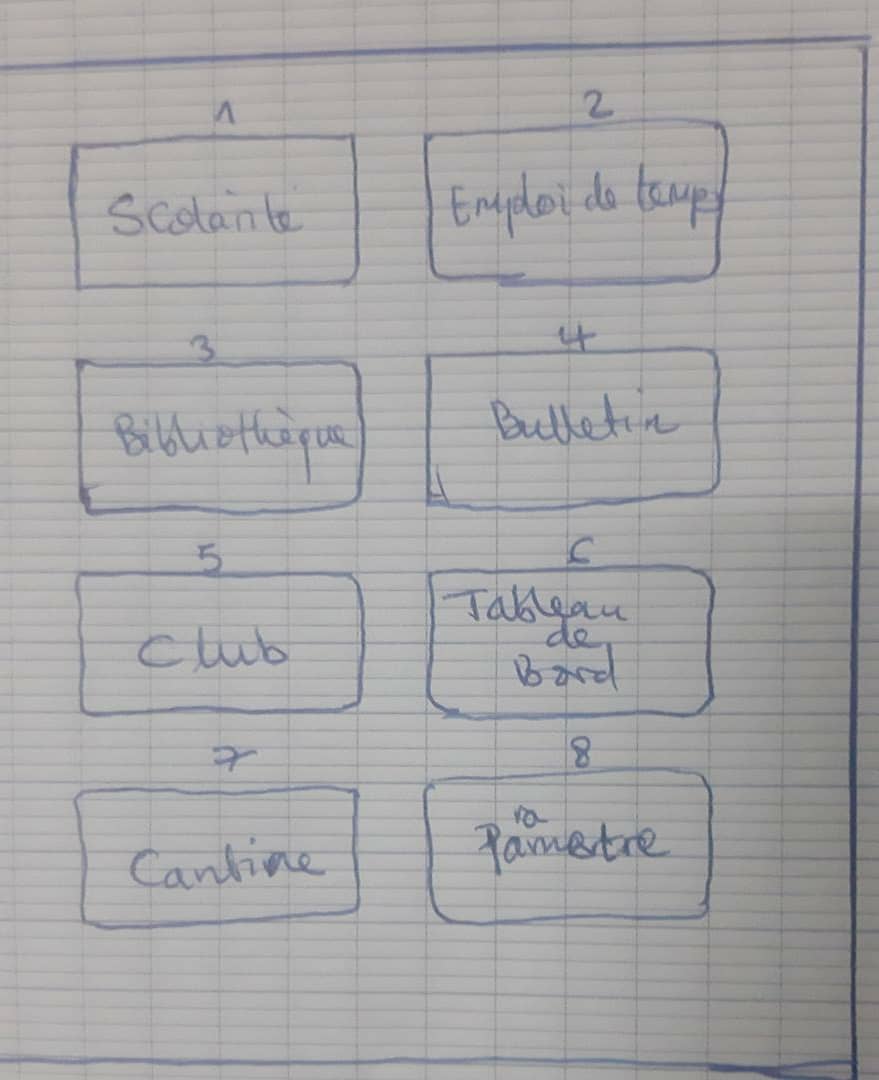 1
2
Scolarité
Emploi de temps
3
4
Bibliothèque
Bulletin
5
6
Club
Tableau
de
Bord
7
8
Cantine
ra
Pametre